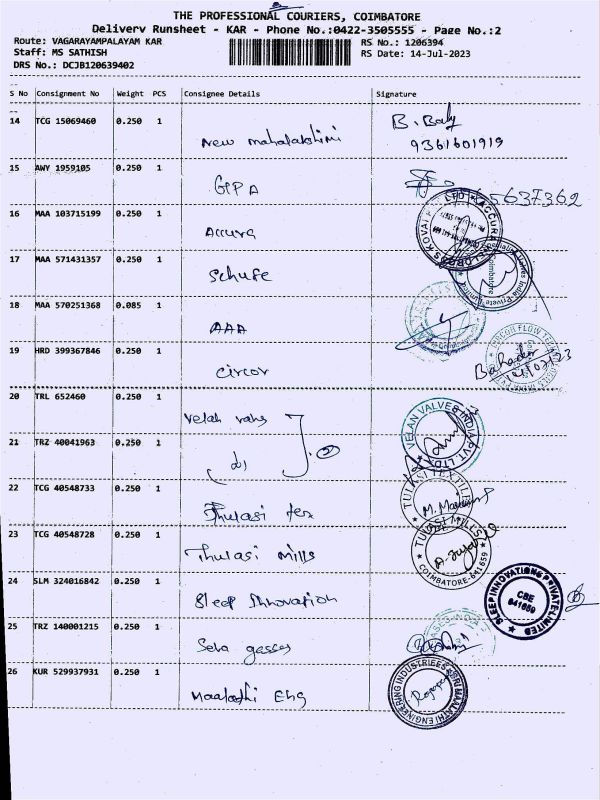 THE PROFESSIONAL COURIERS, COIMBATORE
Delivery Runsheet - KAR - Phone No.:0422-3505555 - Page No.:2
Route: VAGARAYAMPALAYAM KAR RS No.: 1206394
Staff: MS SATHISH RS Date: 14-Jul-2023
DRS No.: DCJB120639402
S No Consignment No Weight PCS Consignee Details Signature
14 TCG 15069460 0.250 1 New mahalakshmi B. Baby
9361601919
15 AWY 1959105 0.250 1 GIPA 637362
16 MAA 103715199 0.250 1 Accura
17 MAA 571431357 0.250 1 Schufe
18 MAA 570251368 0.085 1 AAA
19 HRD 399367846 0.250 1 Circor CIRCOR FLOW Bahador 14/07/23
20 TRL 652460 0.250 1 Velan vans VELAN VALVES INDIA PVT LTD
21 TRZ 40041963 0.250 1 (d) 2
22 TCG 40548733 0.250 1 Thulasi tex TULASI TEXTILE
23 TCG 40548728 0.250 1 Thulasi Mills TULASI MILLS COIMBATORE-641659
24 SLM 324016842 0.250 1 Sleep Innovation SLEEP INNOVATIONS PRIVATE LIMITED CBE 641659
25 TRZ 140001215 0.250 1 Sela gasses
26 KUR 529937931 0.250 1 Maalathi Eng SRI MAALATHI ENGINEERING INDUSTRIEES